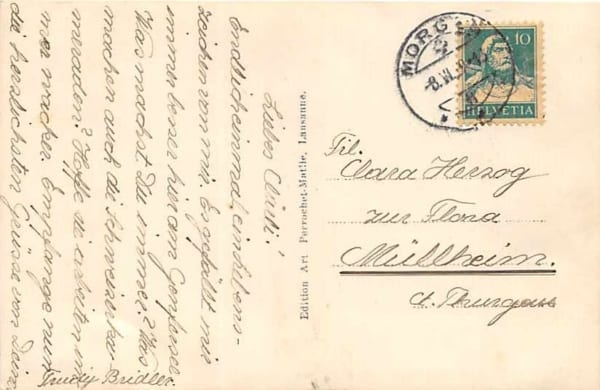 Liebes Clärli!
Endlich einmal ein Lebens-
zeichen von mir. Es gefällt mir
immer besser hier am Genfersee.
Was machst Du immer? Was
machen auch die Schweizerka-
meraden? Hoffe sie arbeiten im-
mer wacker. Empfange nun
die herzlichsten Grüsse von Deiner
Trudy Bridler.
Edition Art Perrochet-Matile, Lausanne.
MORGES
HELVETIA
10
Frl.
Clara Herzog
zur Flora
Müllheim.
Ct. Thurgau